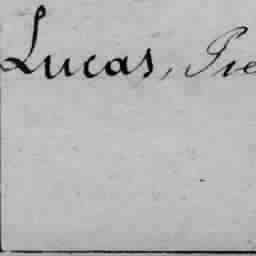 Lucas, Pie